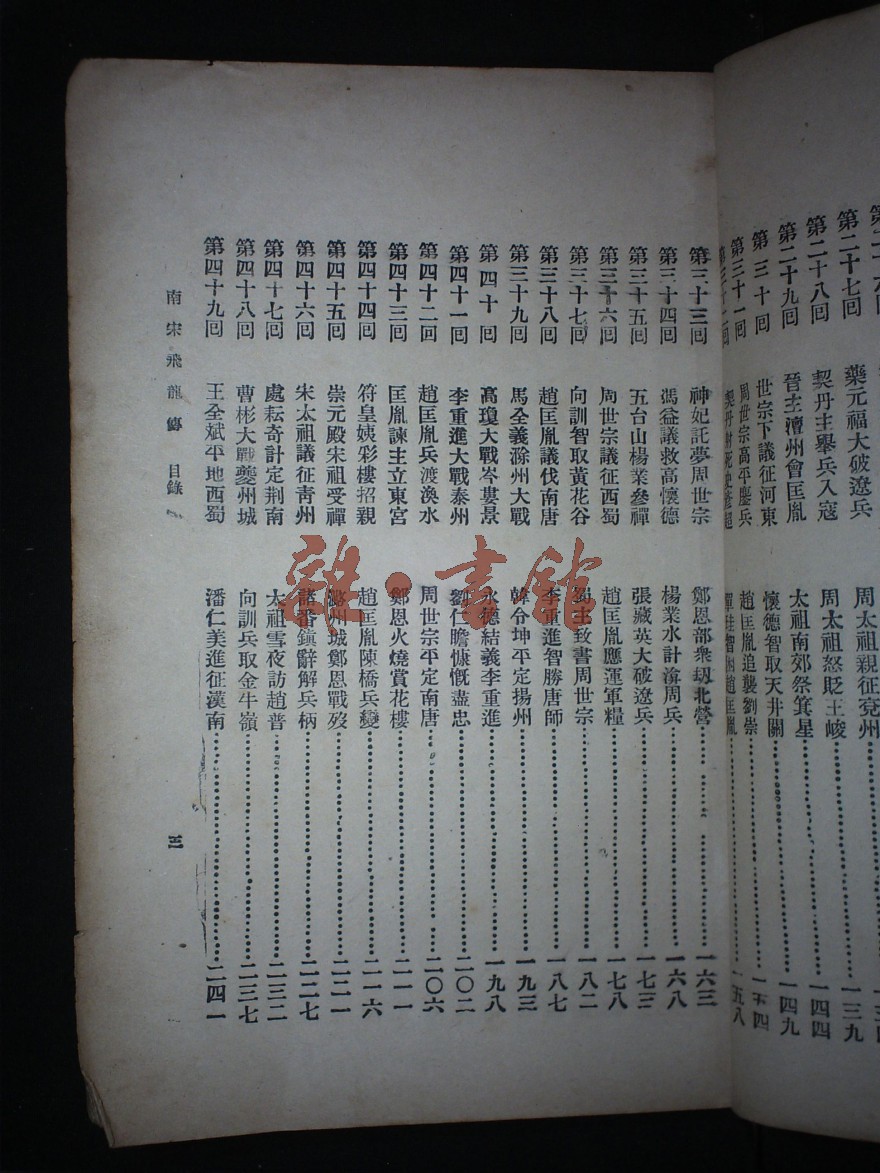 第二十七回 藥元福大破遼兵 周太祖親征兗州 一三九
第二十八回 契丹主舉兵入寇 周太祖怒貶王峻 一四四
第二十九回 晉主澶州會匡胤 太祖南郊祭箕星 一四九
第三十回 世宗下議征河東 懷德智取天井關 一五四
第三十一回 周世宗高平鏖兵 趙匡胤追襲劉崇 一五八
第三十三回 神妃託夢周世宗 鄭恩部衆刼北營 一六三
第三十四回 馮益議救高懷德 楊業水計渰周兵 一六八
第三十五回 五台山楊業參禪 張藏英大破遼兵 一七三
第三十六回 周世宗議征西蜀 趙匡胤應運軍糧 一七八
第三十七回 向訓智取黃花谷 蜀主致書周世宗 一八二
第三十八回 趙匡胤議伐南唐 李重進智勝唐師 一八七
第三十九回 馬全義滁州大戰 韓令坤平定揚州 一九三
第四十回 高瓊大戰岑婁景 永德結義李重進 一九八
第四十一回 李重進大戰泰州 劉仁贍慷慨盡忠 二〇二
第四十二回 趙匡胤兵渡渙水 周世宗平定南唐 二〇六
第四十三回 匡胤諫主立東宮 鄭恩火燒賞花樓 二一一
第四十四回 符皇姨彩樓招親 趙匡胤陳橋兵變 二一六
第四十五回 崇元殿宋祖受禪 潞州城鄭恩戰歿 二二一
第四十六回 宋太祖議征青州 諸番鎮辭解兵柄 二二七
第四十七回 處耘奇計定荆南 太祖雪夜訪趙普 二三二
第四十八回 曹彬大戰夔州城 向訓兵取金牛嶺 二三七
第四十九回 王全斌平地西蜀 潘仁美進征漢南 二四一
南宋飛龍傳 目錄 三
雜·書館